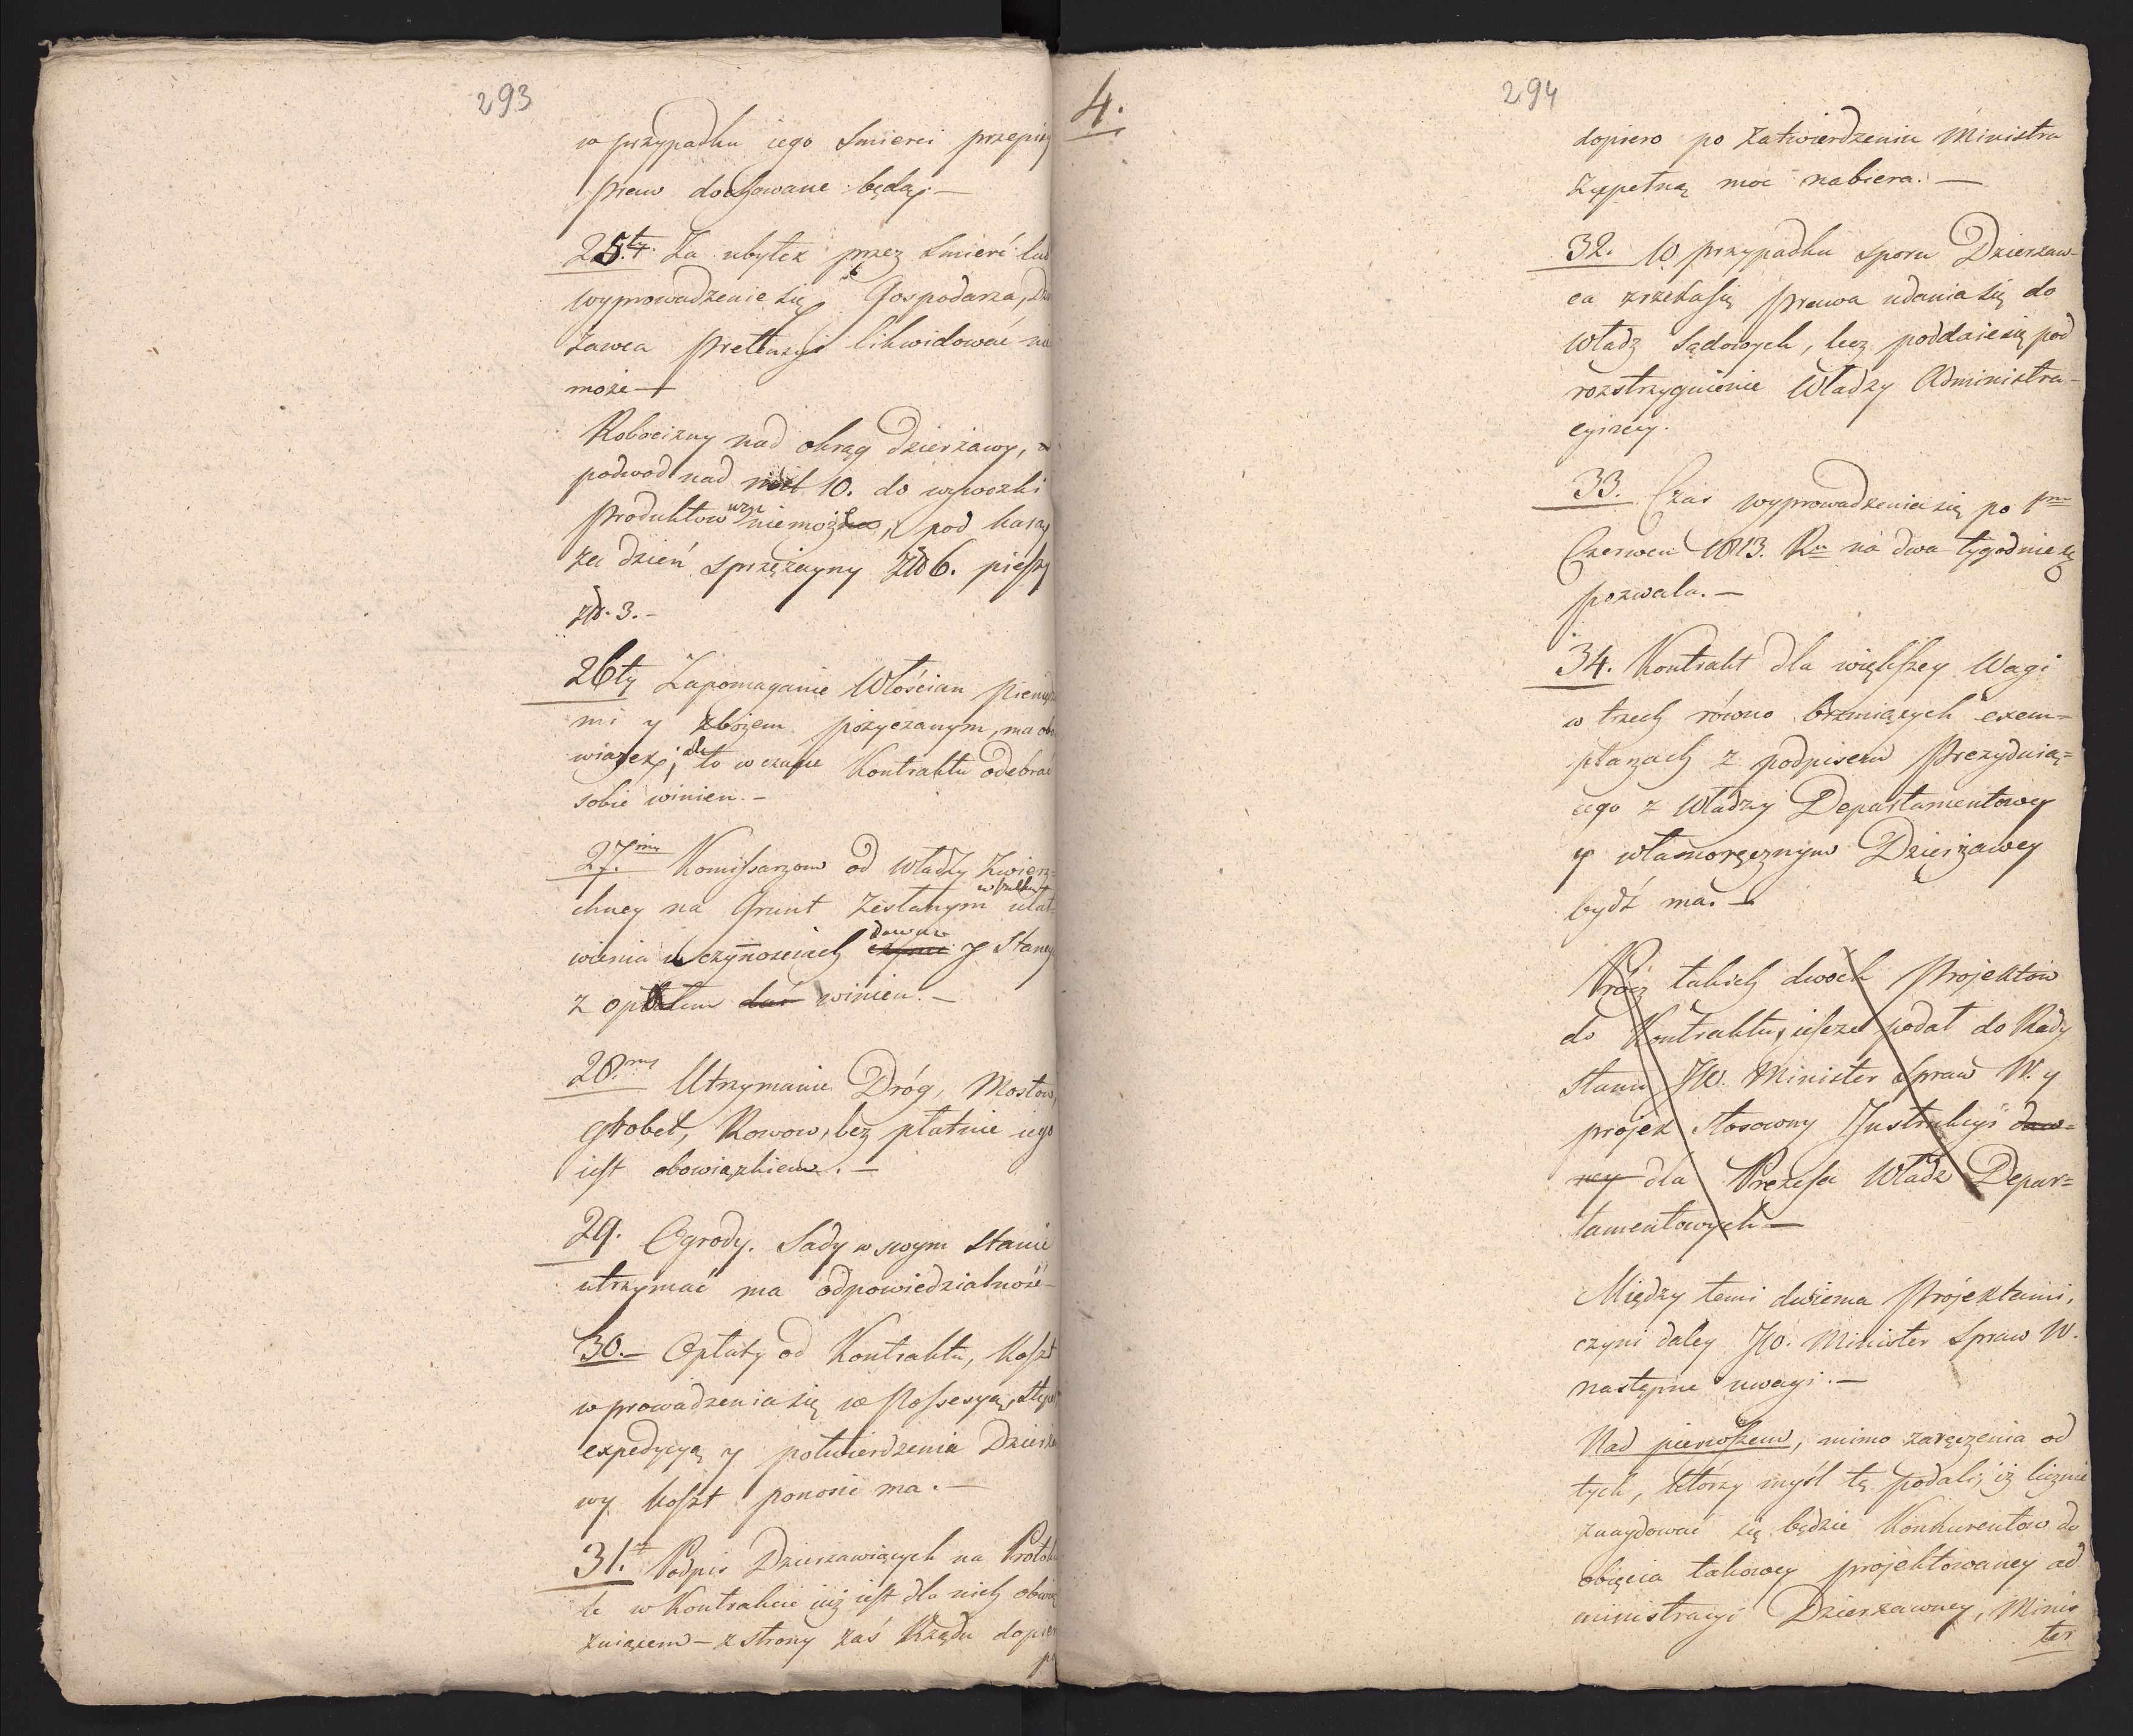 293
w przypadku iego Smierci przepisy
praw dochowane będą.—
25.ty Za ubytek przez Smierć lub
wyprowadzenie się Gospodarza, Dzier
żawca Prettensyi likwidować nie
może—
Robocizny nad okrąg dzierżawy, a
podwod nad mil 10. do wywozki
Produktow niemoże, pod karą
za dzień sprzężayny Złł 6. pieszy
złł. 3.—
26ty Zapomaganie Włościan Pieniędz
mi y zbożem pożyczanym, ma obo
wiązek; ale to w czasie Kontraktu odebrać
sobie winien.—
27.my Komissarzom od Władzy Zwierz=
chney na Grunt Zesłanym ułat=
wienia w czynnościach dawać y Stancyi
z opałem dać winien.—
28.my Utrzymanie Dróg, Mostow,
grobel, Rowow, bez płatnie iego
iest obowiązkiem.—
29. Ogrody. Sady w swym Stanie
utrzymać ma odpowiedzialność—
30.— Opłaty od Kontraktu, Koszt
wprowadzenia się w Possesyą, Stępel
expedycyą y potwierdzenia Dzierża
wy koszt ponosić ma.—
31. Podpis Dzierżawiących na Protokó
le w Kontrakcie iuż iest dla nich obowią
zuiącem — z strony zaś Rządu dopiero
4.
294
dopiero po Zatwierdzeniu Ministra
Zupełną moc nabiera.—
32. W przypadku Sporu Dzierżaw-
ca zrzeka się Prawa udania się do
Władz Sądowych, lecz poddaie się pod
rozstrzygnienie Władzy Administra-
cyiney.
33. Czas wyprowadzenia się po 1mo
Czerwca 1813. Ru na dwa tygodnie się
pozwala.—
34. Kontrakt dla większey Wagi
w trzech równo brzmiących exem=
plarzach z podpisem Prezyduią=
cego z Władzy Departamentowey
y własnoręcznym Dzierżawcy
bydź ma.—
Prócz takich dwoch Projektow
do Kontraktu, ieszcze podał do Rady
Stanu JW. Minister Spraw W. y
projek stosowny Instrukcyi daw=
ney dla Prezesa Władz Depar=
tamentowych—
Między temi dwiema Projektami,
czyni daley JW. Minister Spraw W.
następne uwagi.—
Nad pierwszem, mimo zaręczenia od
tych, którzy myśl tę podali, iż licznie
znaydować się będzie Konkurentow do
obięcia takowey projektowaney ad
ministracyi Dzierżawney, Minis
ter